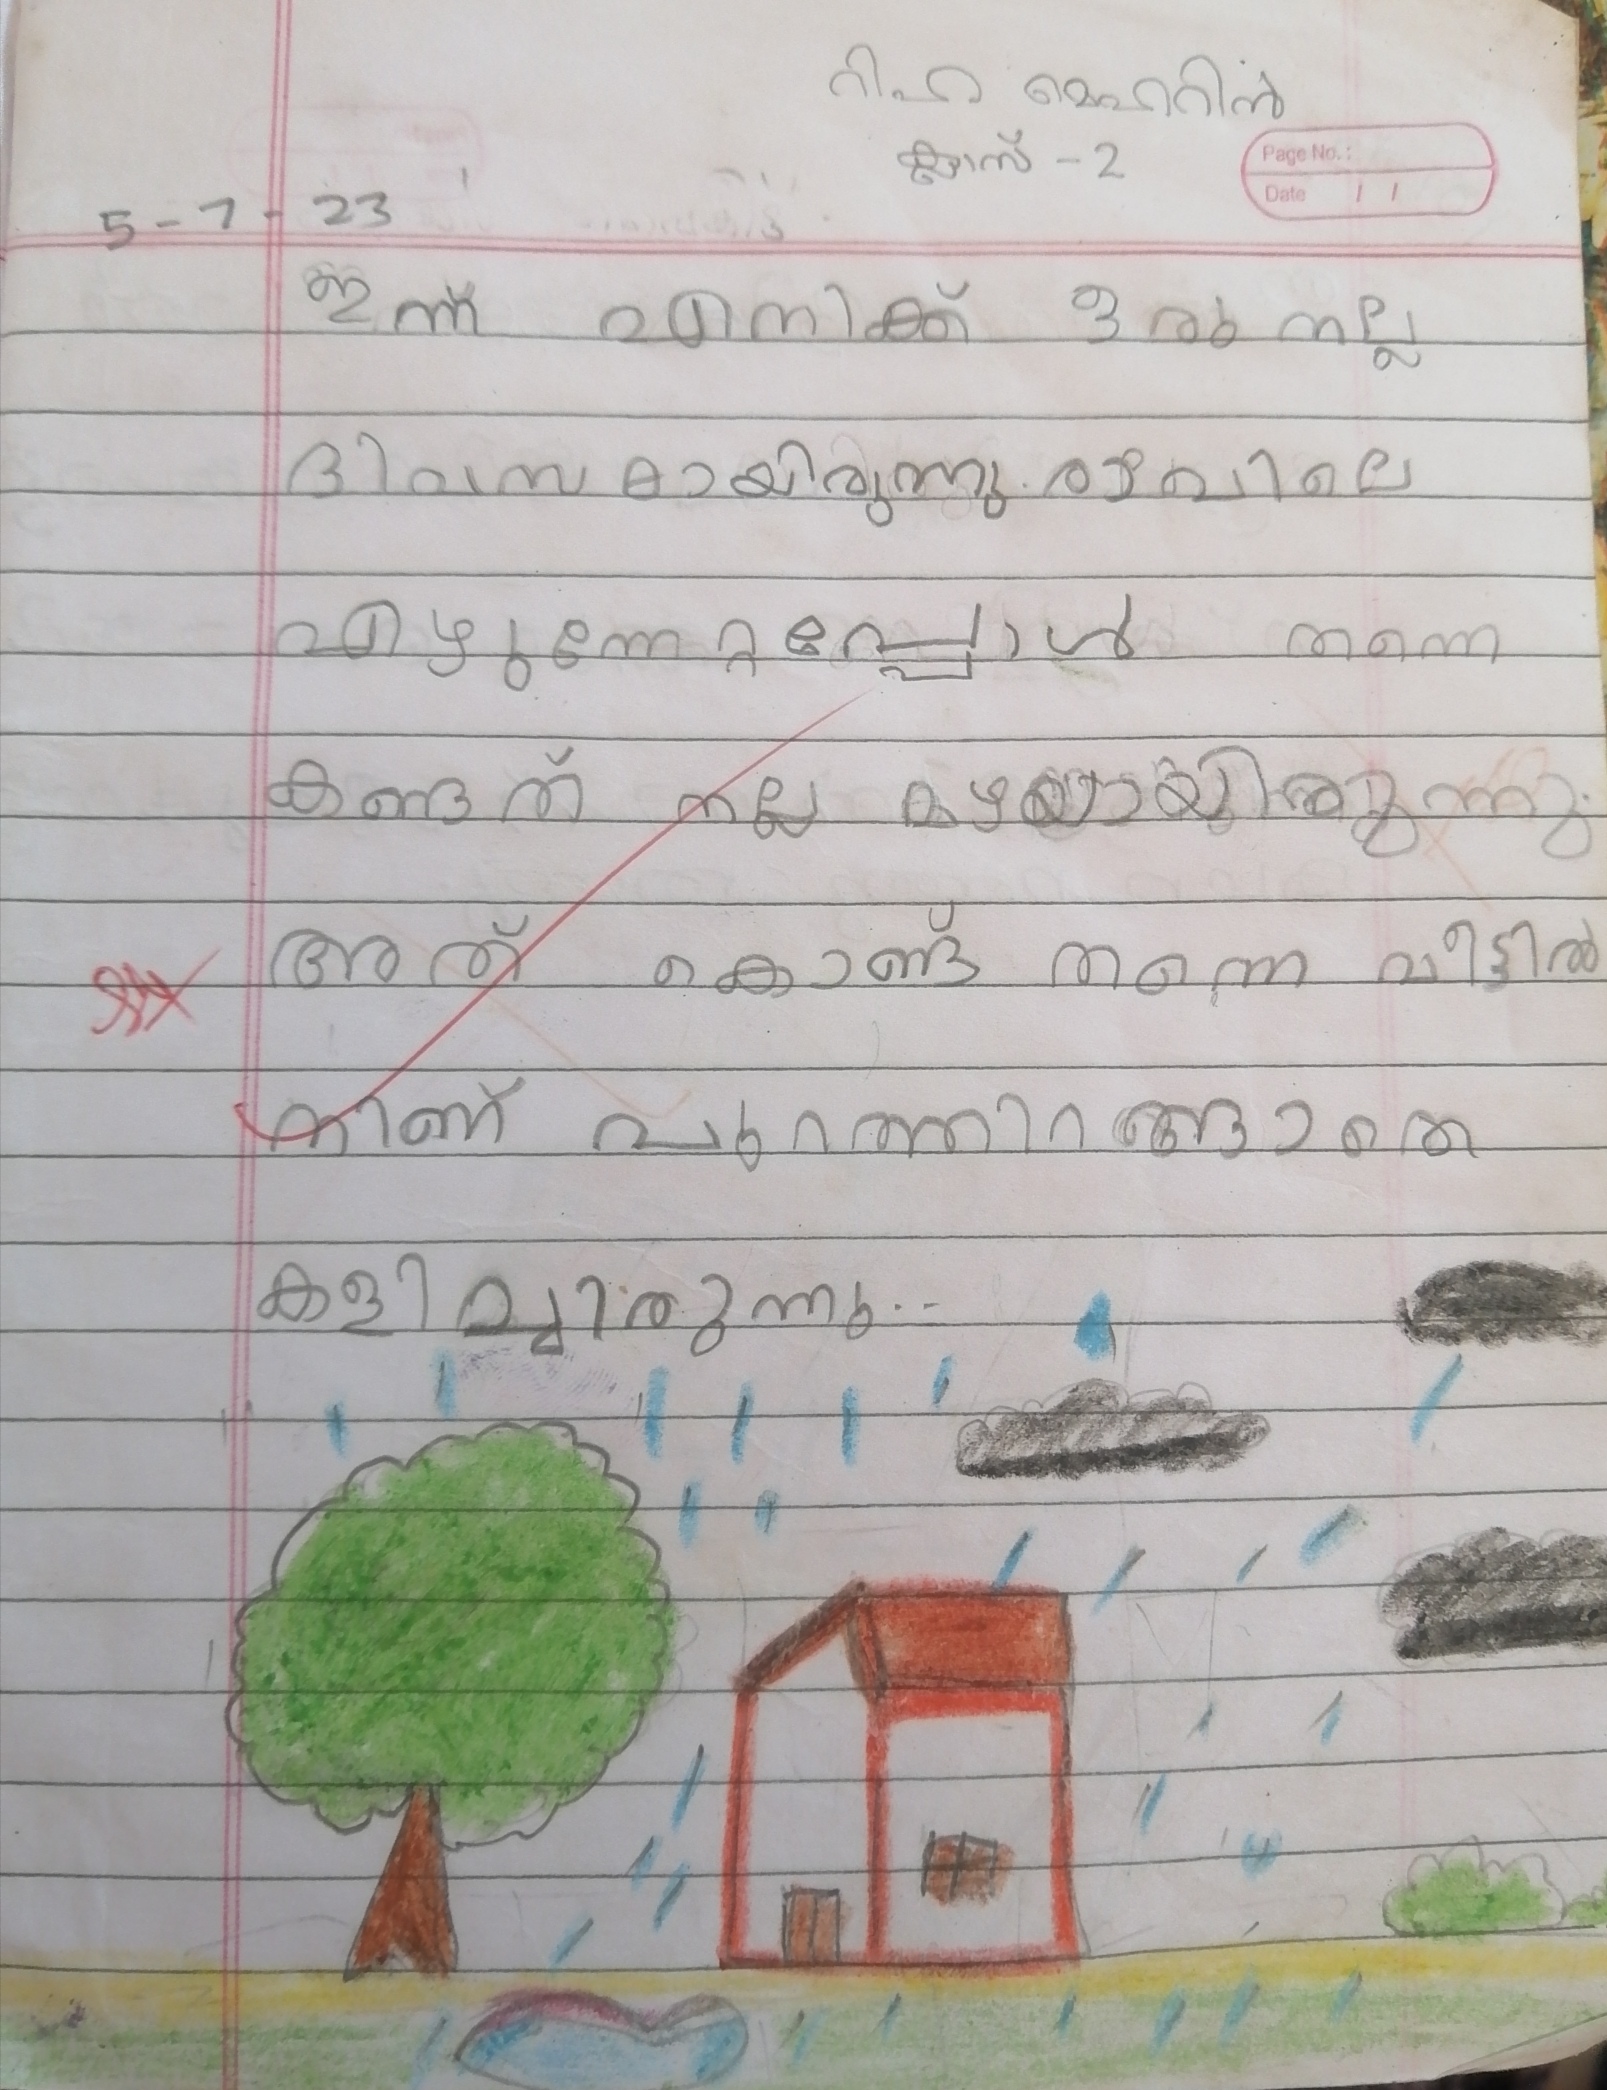 റിഹ മെഹറിൻ
ക്ലാസ് - 2
Page No.:
Date / /
5 - 7 - 23
ഇന്ന് എനിക്ക് ഒരു നല്ല
ദിവസമായിരുന്നു. രാവിലെ
എഴുന്നേറ്റപ്പോൾ തന്നെ
കണ്ടത് നല്ല മഴയായിരുന്നു.
അത് കൊണ്ട് തന്നെ വീട്ടിൽ
നിണ് പുറത്തിറങ്ങാതെ
കളിച്ചിരുന്നു...